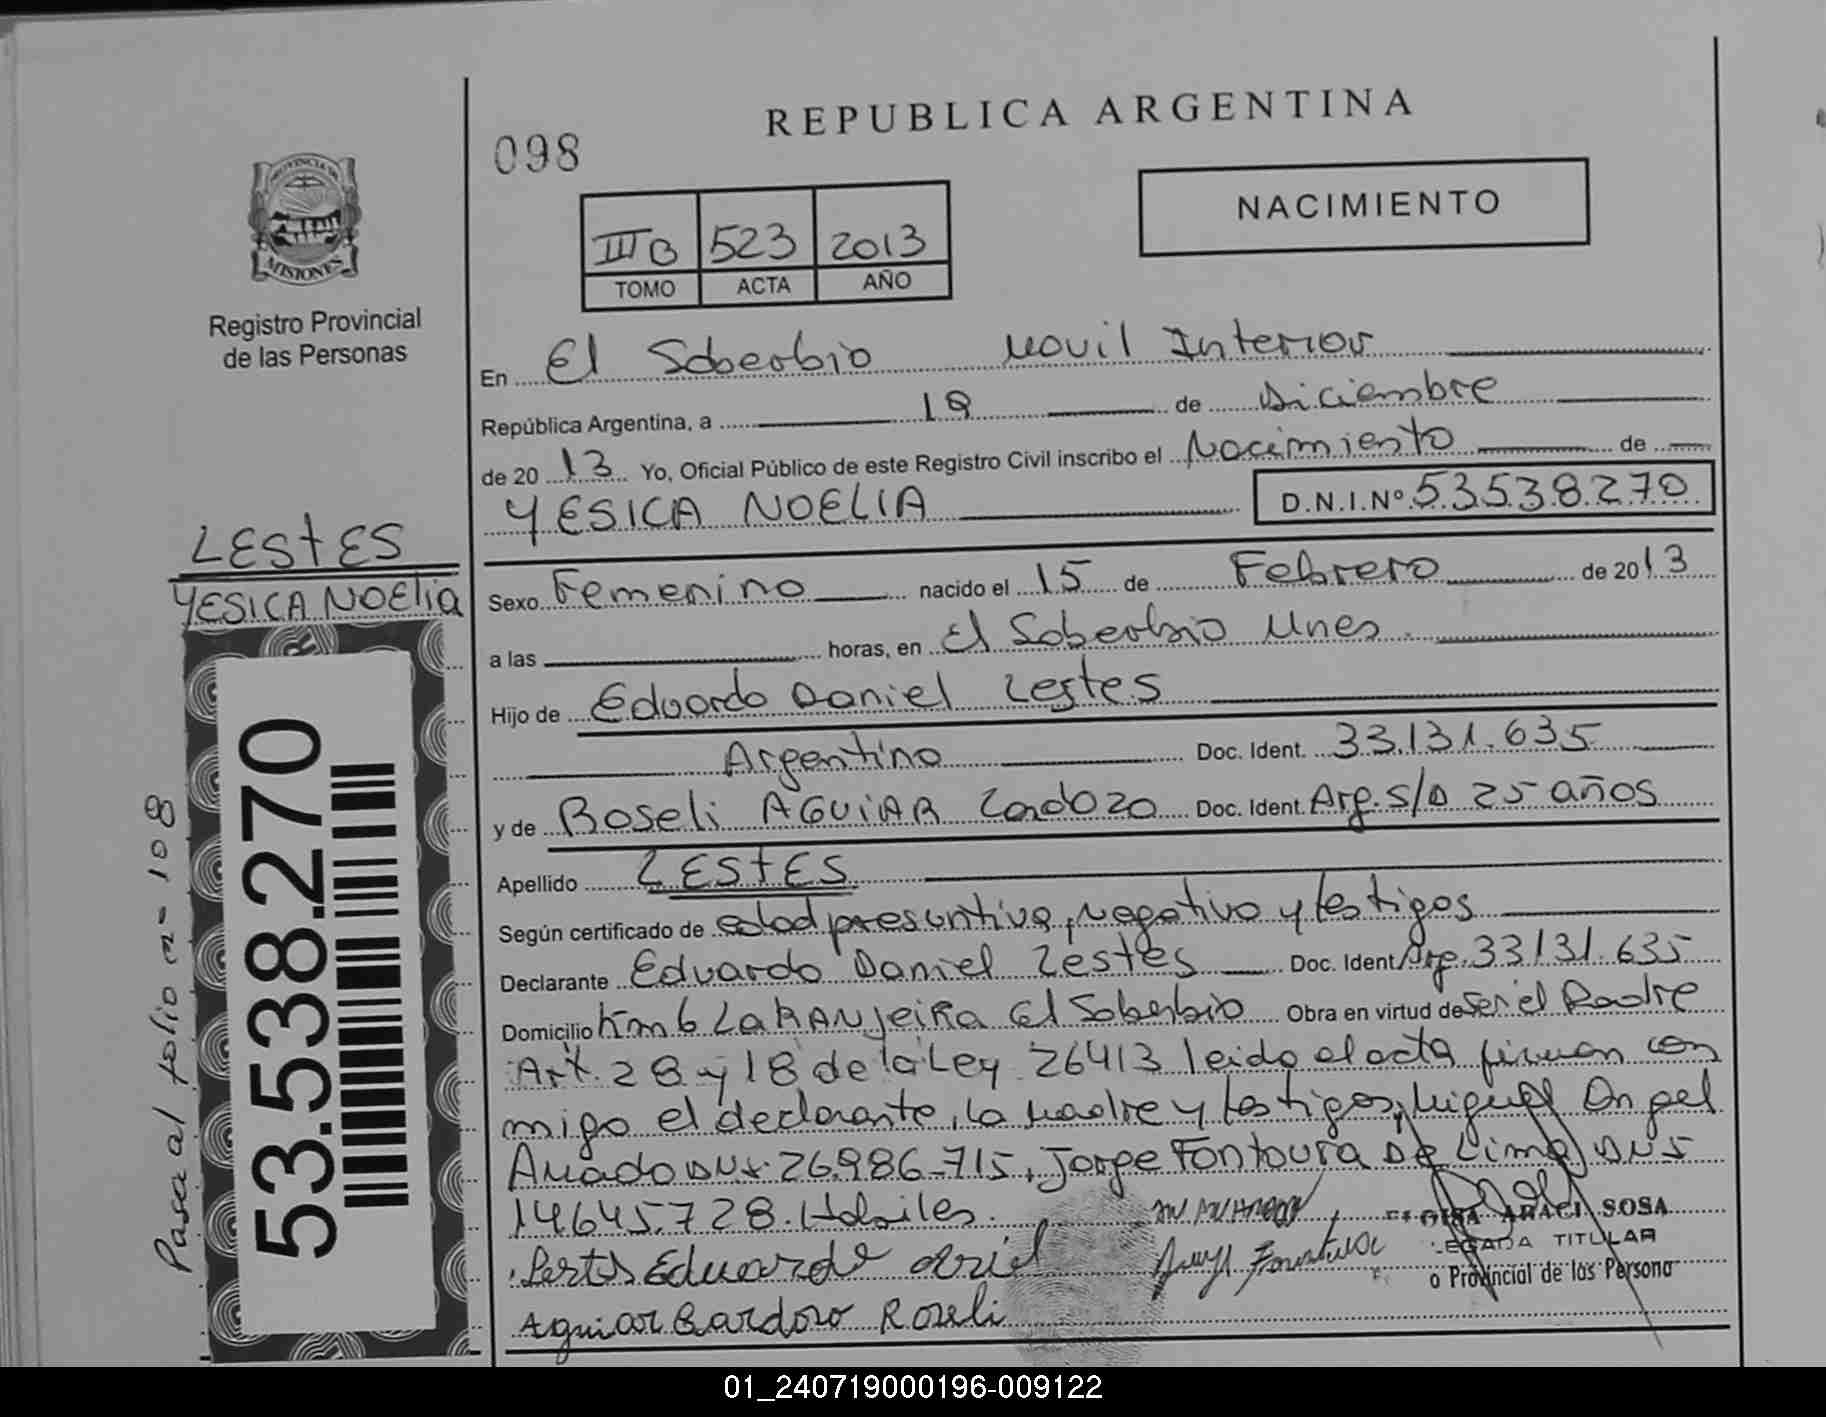 REPUBLICA ARGENTINA
098
NACIMIENTO
III B 523 2013
TOMO ACTA AÑO
PROVINCIA DE
MISIONES
Registro Provincial
de las Personas
En El Soberbio Movil Interior
República Argentina, a 19 de Diciembre
de 2013 Yo, Oficial Público de este Registro Civil inscribo el Nacimiento de
YESICA NOELIA D.N.I.Nº 53538270
LESTES
YESICA NOELIA
Sexo Femenino nacido el 15 de Febrero de 2013
a las horas, en El Soberbio Mnes.
Hijo de Eduardo Daniel Lestes
Argentino Doc. Ident. 33.131.635
y de Roseli AGUIAR Cardozo Doc. Ident. Arg. S/D 25 años
Apellido LESTES
Según certificado de edad presuntiva, negativo y testigos
Declarante Eduardo Daniel Lestes Doc. Ident. Arg. 33131.635
Domicilio Km 6 LaRANJeiRa El Soberbio Obra en virtud de Ser el Padre
Art. 28 y 18 de la Ley 26413 leido el acta firman con
migo el declarante, la madre y testigos, Miguel Angel
Amado DNI. 26.986.715, Jorge Fontoura De Lima DNI
14645.728. Habiles.
ELOISA ARACI SOSA
LEGADA TITULAR
o Provincial de las Persona
Aguiar Cardozo Roseli
53.538.270
Pasa al folio nº 108
01_240719000196-009122